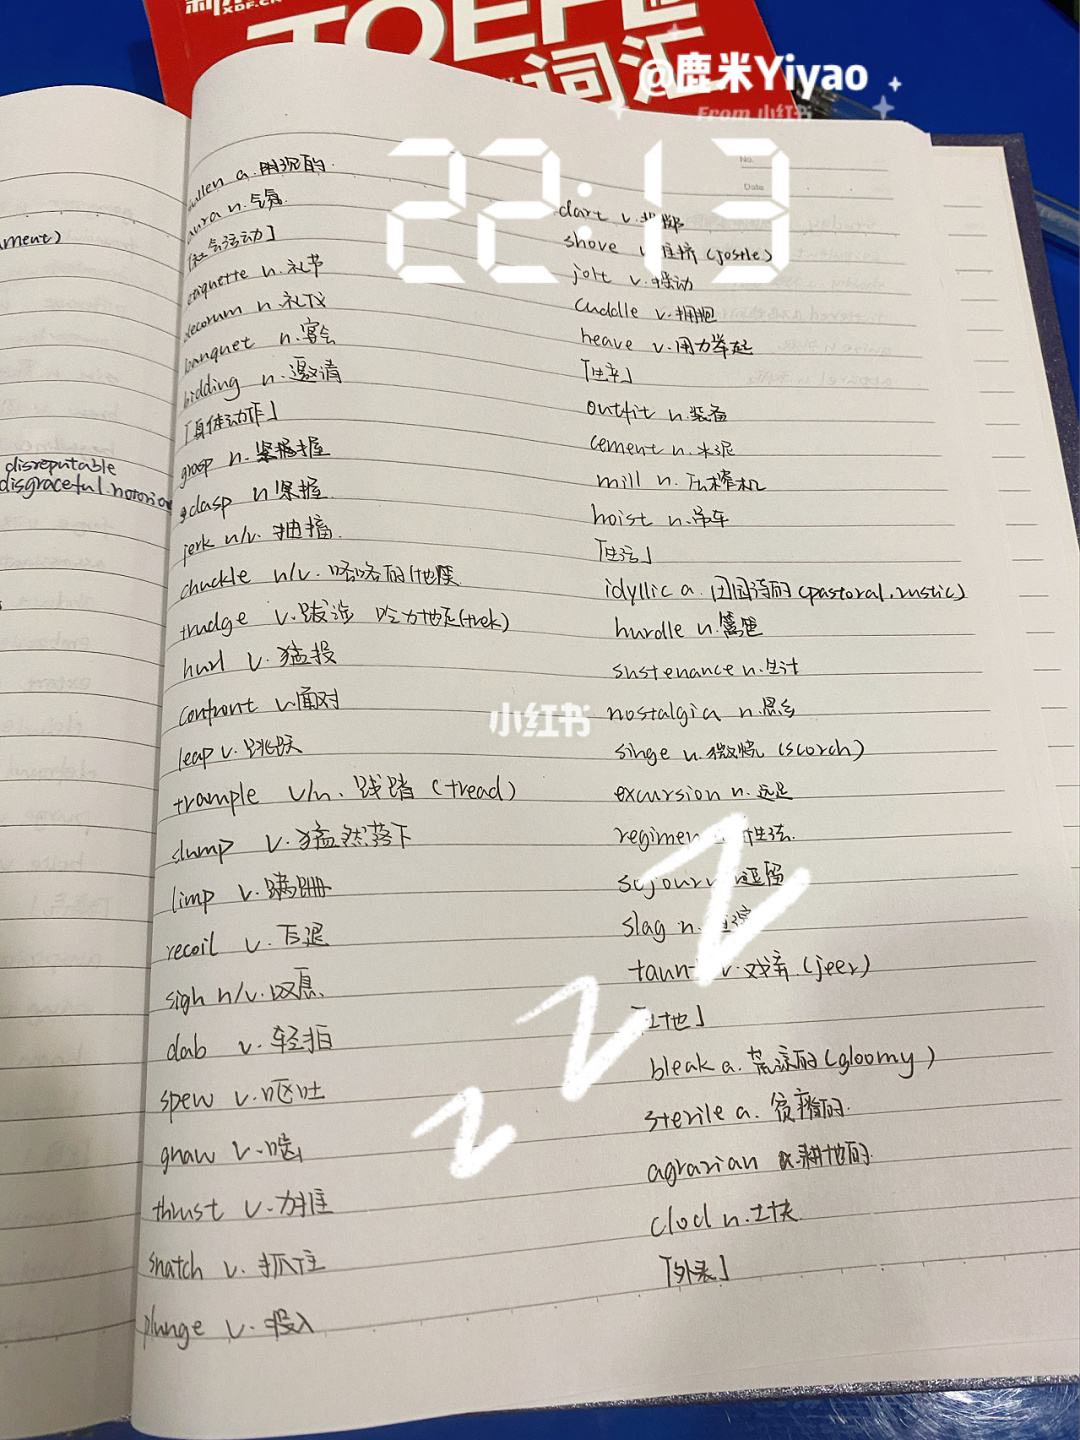 XDF.CN
TOEFL
词汇
@鹿米Yiyao
From 小红书
22:13
No.
Date
sullen a. 阴沉的
aura n. 气氛
[社会活动]
etiquette n. 礼节
decorum n. 礼仪
banquet n. 宴会
bidding n. 邀请
「具体动作」
grasp n. 紧握
clasp n 紧握
jerk n/v. 抽搐
chuckle n/v. 咯咯的
trudge v. 跋涉 吃力地走(trek)
hurl v. 猛投
confront v. 面对
leap v. 跳跃
trample v/n. 践踏 (tread)
slump v. 猛然落下
limp v. 蹒跚
recoil v. 后退
sigh n/v. 叹息
dab v. 轻拍
spew v. 呕吐
gnaw v. 啃
thrust v. 力推
snatch v. 抓住
plunge v. 投入
dart v. 投掷
shove v. 推挤 (jostle)
jolt v. 摇动
cuddle v. 拥抱
heave v. 用力举起
outfit n. 装备
cement n. 水泥
mill n. 压榨机
hoist n. 吊车
「生活」
idyllic a. 田园诗的 (pastoral, rustic)
hurdle n. 篱笆
sustenance n. 生计
nostalgia n. 思乡
singe n. 微烧 (scorch)
excursion n. 远足
regimen
sojourn 逗留
slag n.
taunt v. 戏弄 (jeer)
「土地」
bleak a. 荒凉的 (gloomy)
sterile a. 贫瘠的
agrarian a. 耕地的
clod n. 土块
「外表」
disreputable
disgraceful. notorio
ament)
小红书
z z z